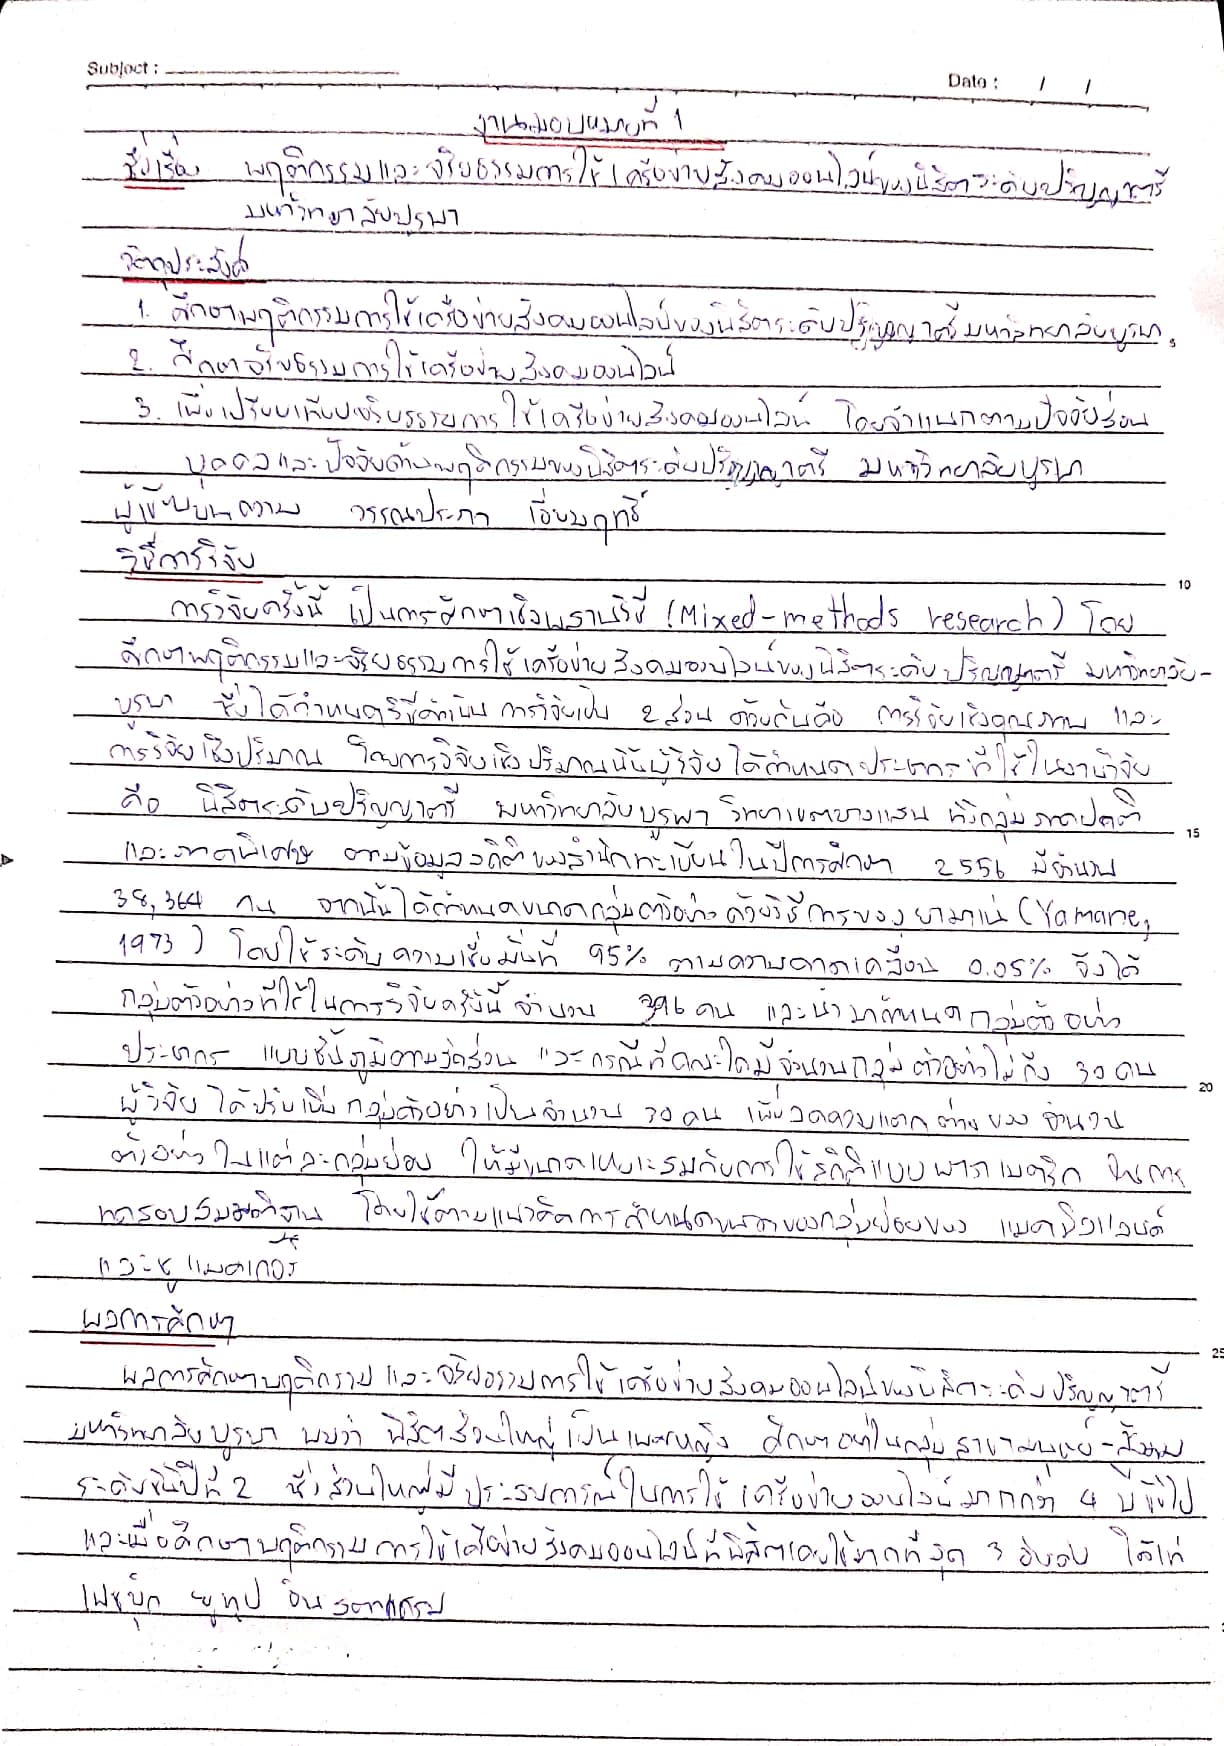 Subject :
Date : / /
งานมอบหมายที่ 1
ชื่อเรื่อง พฤติกรรมและจริยธรรมการใช้เครือข่ายสังคมออนไลน์ของนิสิตระดับปริญญาตรี
มหาวิทยาลัยบูรพา
วัตถุประสงค์
1. ศึกษาพฤติกรรมการใช้เครือข่ายสังคมออนไลน์ของนิสิตระดับปริญญาตรี มหาวิทยาลัยบูรพา
2. ศึกษาจริยธรรมการใช้เครือข่ายสังคมออนไลน์
3. เพื่อเปรียบเทียบจริยธรรมการใช้เครือข่ายสังคมออนไลน์ โดยจำแนกตามปัจจัยส่วน
บุคคลและปัจจัยด้านพฤติกรรมของนิสิตระดับปริญญาตรี มหาวิทยาลัยบูรพา
ผู้เขียนบทความ วรรณประภา เอี่ยมฤทธิ์
วิธีการวิจัย
10
การวิจัยครั้งนี้ เป็นการศึกษาเชิงผสานวิธี (Mixed-methods research) โดย
ศึกษาพฤติกรรมและจริยธรรมการใช้เครือข่ายสังคมออนไลน์ของนิสิตระดับปริญญาตรี มหาวิทยาลัย-
บูรพา ซึ่งได้กำหนดวิธีดำเนินการวิจัยเป็น 2 ส่วน ด้วยกันคือ การวิจัยเชิงคุณภาพ และ
การวิจัยเชิงปริมาณ โดยการวิจัยเชิงปริมาณนั้นผู้วิจัยได้กำหนดประชากรที่ใช้ในงานวิจัย
คือ นิสิตระดับปริญญาตรี มหาวิทยาลัยบูรพา วิทยาเขตบางแสน ทั้งกลุ่มภาคปกติ
15
และภาคพิเศษ ตามข้อมูลสถิติของสำนักทะเบียนในปีการศึกษา 2556 มีจำนวน
38,364 คน จากนั้นได้กำหนดขนาดกลุ่มตัวอย่างด้วยวิธีการของยามาเน่ (Yamane,
1973) โดยใช้ระดับความเชื่อมั่นที่ 95% ตามความคาดเคลื่อน 0.05% จึงได้
กลุ่มตัวอย่างที่ใช้ในการวิจัยครั้งนี้จำนวน 396 คน และนำมากำหนดกลุ่มตัวอย่าง
ประชากร แบบชั้นภูมิตามสัดส่วน และกรณีที่คณะใดมีจำนวนกลุ่มตัวอย่างไม่ถึง 30 คน
20
ผู้วิจัยได้ปรับเพิ่มกลุ่มตัวอย่างเป็นจำนวน 30 คน เพื่อลดความแตกต่างของจำนวน
ตัวอย่างในแต่ละกลุ่มย่อย ให้มีขนาดเหมาะสมกับการใช้สถิติแบบพาราเมตริก ในการ
ทดสอบสมมติฐาน โดยใช้ตามแนวคิดการกำหนดขนาดของกลุ่มย่อยของ แมคมิลแลนด์
และชูแมคเกอร์
ผลการศึกษา
25
ผลการศึกษาพฤติกรรม และจริยธรรมการใช้เครือข่ายสังคมออนไลน์ของนิสิตระดับปริญญาตรี
มหาวิทยาลัยบูรพา พบว่า นิสิตส่วนใหญ่เป็นเพศหญิง ศึกษาอยู่ในกลุ่มสาขามนุษย์-สังคม
ระดับชั้นปีที่ 2 ซึ่งส่วนใหญ่มีประสบการณ์ในการใช้เครือข่ายออนไลน์มากกว่า 4 ปีขึ้นไป
และเมื่อศึกษาพฤติกรรมการใช้เครือข่ายสังคมออนไลน์ที่นิสิตเคยใช้มากที่สุด 3 อันดับ ได้แก่
เฟซบุ๊ก ยูทูป อินสตาแกรม